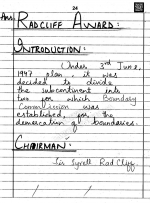 24
Ans: RADCLIFF AWARD:
INTRODUCTION:
Under 3rd June,
1947 plan, it was
decided to divide
the subcontinent into
two for which Boundary
Commission was
established for the
demarcation of boundaries.
CHAIRMAN:
Sir Cyrell Rad Cliff